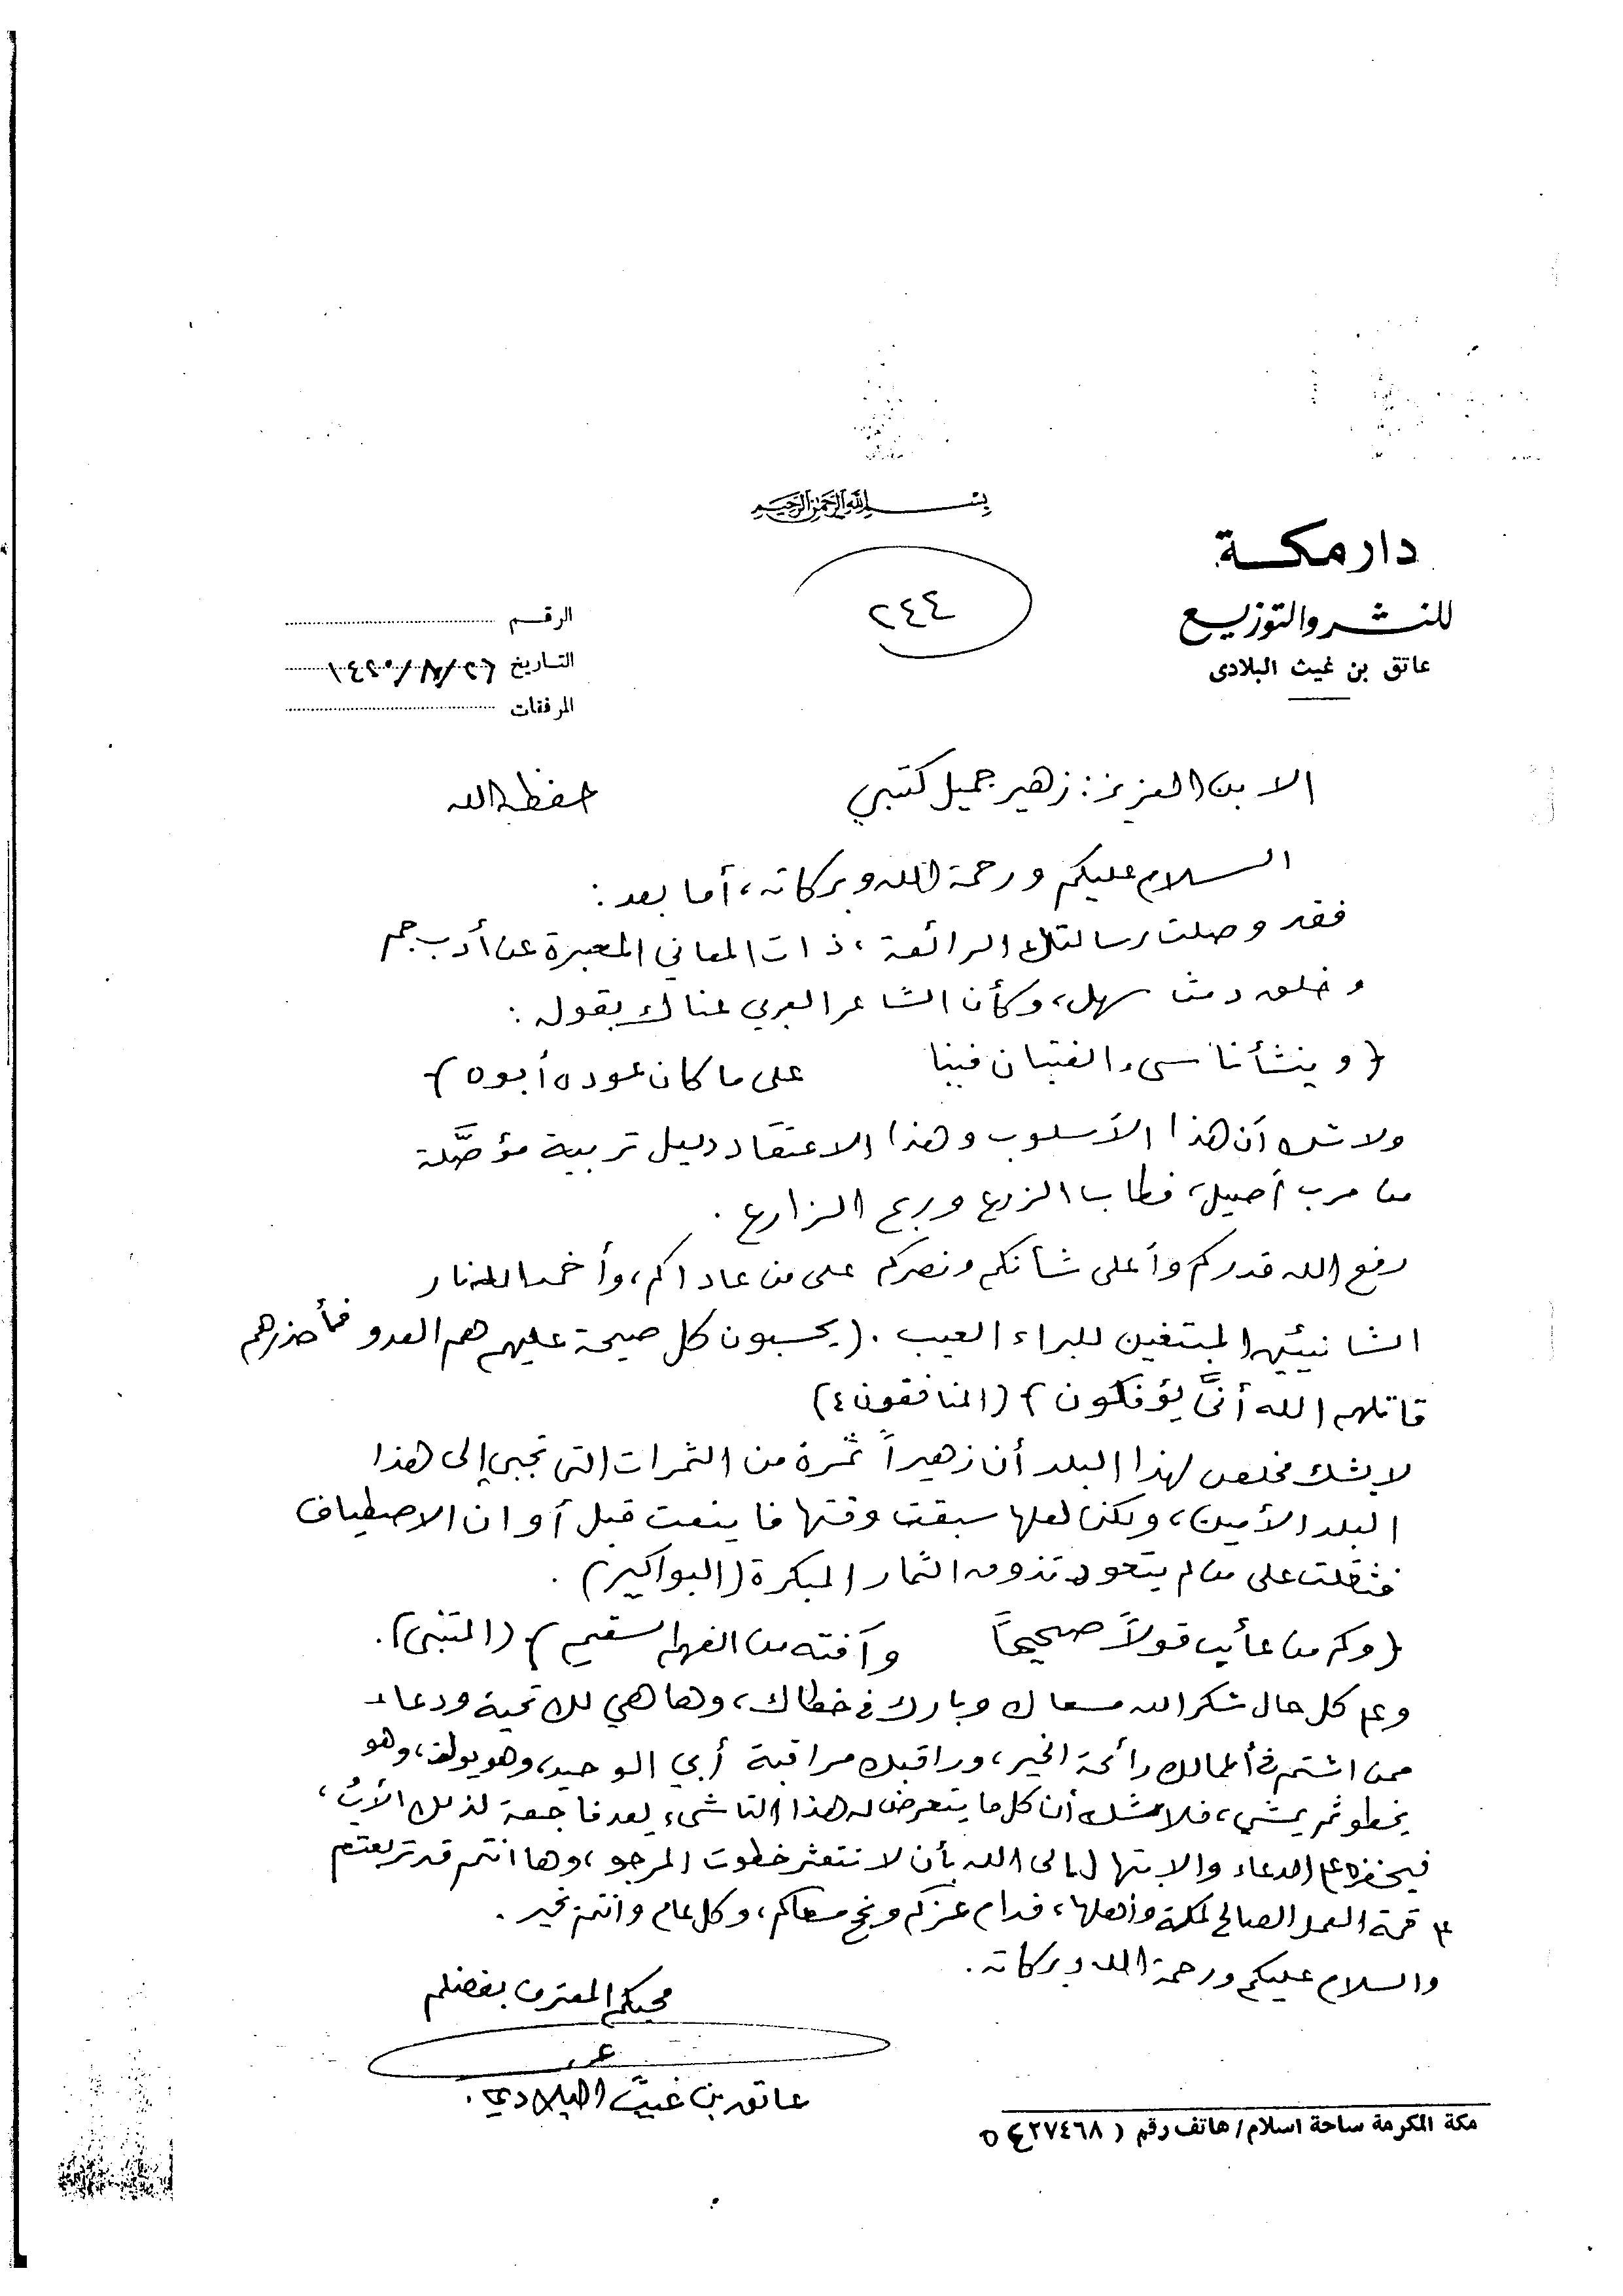 بسم الله الرحمن الرحيم
دار مكة
للنشر والتوزيع
عاتق بن غيث البلادي
٢٤٤
الرقم
التاريخ ٢٦/٨/١٤٢٠
المرفقات
الابن العزيز: زهير جميل كتبي حفظه الله
السلام عليكم ورحمة الله وبركاته، أما بعد:
فقد وصلت رسالتك الرائعة، ذات المعاني المعبرة عن أدب جم
وخلق دمث سهل، وكأن الشاعر العربي عناك بقوله:
{وينشأ ناشىء الفتيان فينا على ما كان عوده أبوه}
ولا شك أن هذا الأسلوب وهذا الاعتقاد دليل تربية مؤصَّلة
من مرب أصيل، فطاب الزرع وربح الزارع.
رفع الله قدركم وأعلى شأنكم ونصركم على من عاداكم، وأخمد الله نار
الشانئين المبتغين للبراء العيب. (يحسبون كل صيحة عليهم هم العدو فأحذرهم
قاتلهم الله أنَّى يؤفكون} (المنافقون ٤)
لا يشك مخلص لهذا البلد أن زهيراً ثمرة من الثمرات التي تجبى إلى هذا
البلد الأمين، ولكن لعلها سبقت وقتها فأينعت قبل أوان الاصطياف
فثقلت على من لم يتعود تذوق الثمار المبكرة (البواكير).
{وكم من عائب قولاً صحيحاً وآفته من الفهم السقيم} (المتنبي).
وعلى كل حال شكر الله مسعاك وبارك في خطاك، وها هي لك تحية ودعاء
ممن اشتم في أعمالك رائحة الخير، وراقبك مراقبة أبي الوحيد، وهو يولد، وهو
يخطو ثم يمشي، فلا شك أن كل ما يتعرض له هذا الناشىء يعد فاجعة لذلك الأبُ،
فيحفزه على الدعاء والابتهال إلى الله بأن لا تتعثر خطوت المرجو، وها انتم قد تربعتم
على قمة العمل الصالح لمكة وأهلها، فدام عزكم ونجح مسعاكم، وكل عام وانتم بخير.
والسلام عليكم ورحمة الله وبركاته.
محبكم المعترف بفضلكم
عاتق بن غيث البلادي.
مكة المكرمة ساحة اسلام / هاتف رقم (